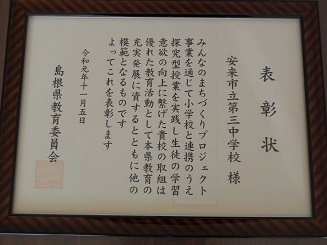 表彰状
安来市立第三中学校 様
みんなのまちづくりプロジェクト
事業を通じて小学校と連携のうえ
探究型授業を実践し生徒の学習
意欲の向上に繋げた貴校の取組は
優れた教育活動として本県教育の
充実発展に資するとともに他の
模範となるものです
よってこれを表彰します
令和元年十一月五日
島根県教育委員会